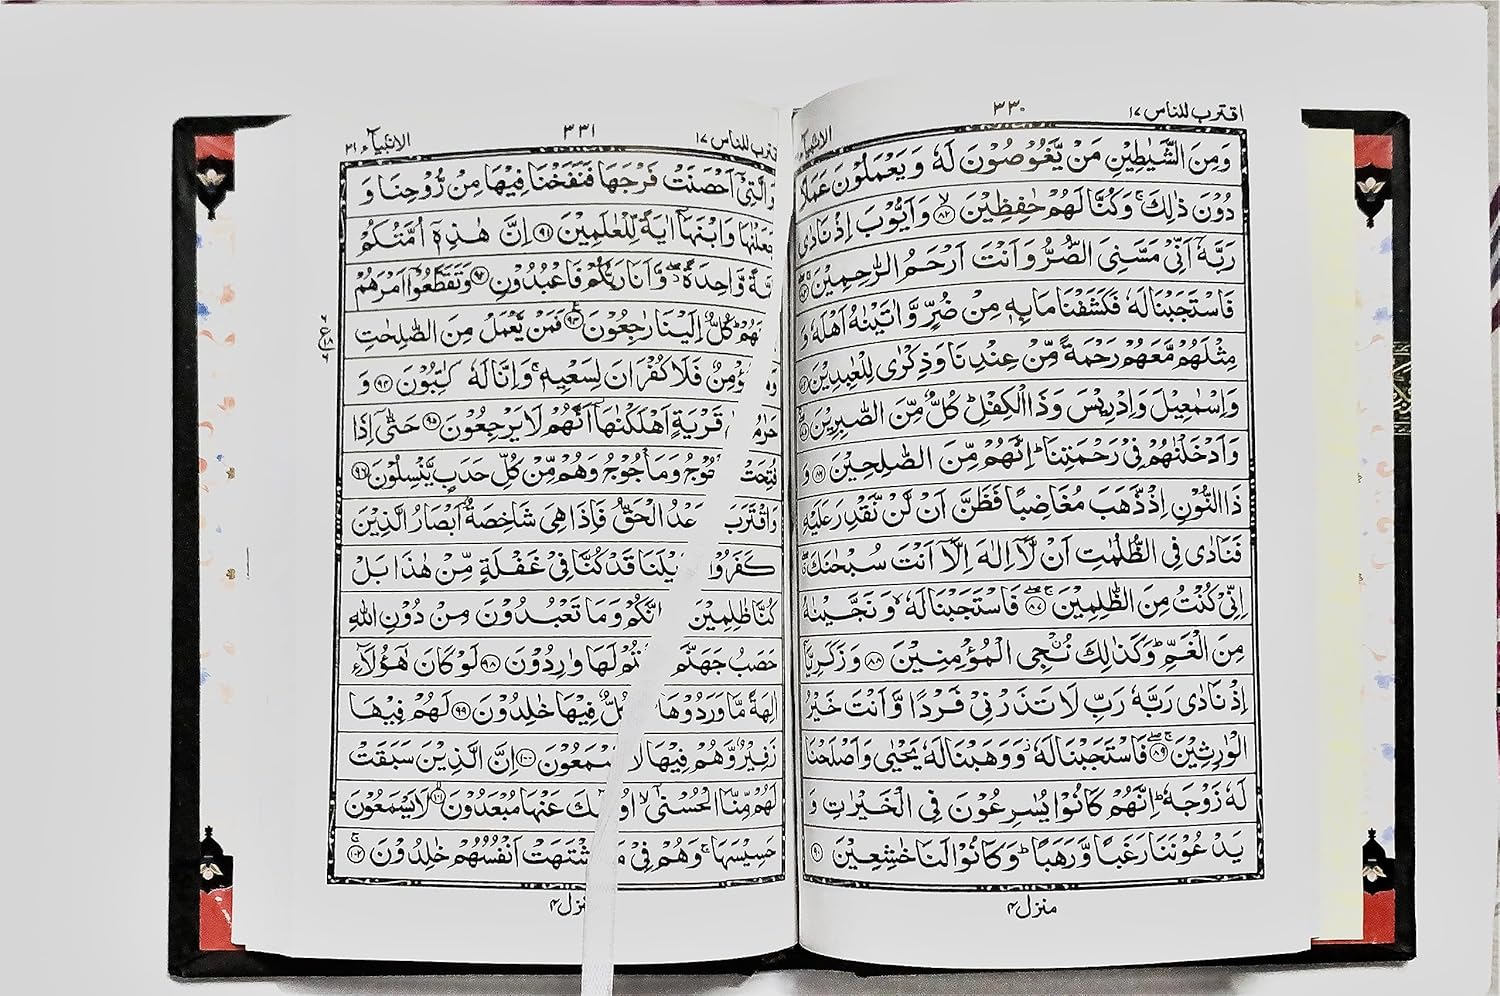 اقترب للناس ١٧
٣٣٠
وَمِنَ الشَّيٰطِيْنِ مَنْ يَّغُوْصُوْنَ لَهٗ وَيَعْمَلُوْنَ عَمَلًا
دُوْنَ ذٰلِكَ ۚ وَكُنَّا لَهُمْ حٰفِظِيْنَ ۙ﴿٨٢﴾ وَاَيُّوْبَ اِذْ نَادٰى
رَبَّهٗۤ اَنِّىْ مَسَّنِىَ الضُّرُّ وَاَنْتَ اَرْحَمُ الرّٰحِمِيْنَ
فَاسْتَجَبْنَا لَهٗ فَكَشَفْنَا مَا بِهٖ مِنْ ضُرٍّ وَّاٰتَيْنٰهُ اَهْلَهٗ وَ
مِثْلَهُمْ مَّعَهُمْ رَحْمَةً مِّنْ عِنْدِنَا وَذِكْرٰى لِلْعٰبِدِيْنَ
وَاِسْمٰعِيْلَ وَاِدْرِيْسَ وَذَا الْكِفْلِ ؕ كُلٌّ مِّنَ الصّٰبِرِيْنَ
وَاَدْخَلْنٰهُمْ فِىْ رَحْمَتِنَا ؕ اِنَّهُمْ مِّنَ الصّٰلِحِيْنَ ﴿٨٦﴾ وَ
ذَا النُّوْنِ اِذْ ذَّهَبَ مُغَاضِبًا فَظَنَّ اَنْ لَّنْ نَّقْدِرَ عَلَيْهِ
فَنَادٰى فِى الظُّلُمٰتِ اَنْ لَّاۤ اِلٰهَ اِلَّاۤ اَنْتَ سُبْحٰنَكَ
اِنِّىْ كُنْتُ مِنَ الظّٰلِمِيْنَ ﴿٨٧﴾ فَاسْتَجَبْنَا لَهٗ ۙ وَنَجَّيْنٰهُ
مِنَ الْغَمِّ ؕ وَكَذٰلِكَ نُـنْجِى الْمُؤْمِنِيْنَ ﴿٨٨﴾ وَزَكَرِيَّاۤ
اِذْ نَادٰى رَبَّهٗ رَبِّ لَا تَذَرْنِىْ فَرْدًا وَّاَنْتَ خَيْرُ
الْوٰرِثِيْنَ ﴿٨٩﴾ فَاسْتَجَبْنَا لَهٗ وَوَهَبْنَا لَهٗ يَحْيٰى وَاَصْلَحْنَا
لَهٗ زَوْجَهٗ ؕ اِنَّهُمْ كَانُوْا يُسٰرِعُوْنَ فِى الْخَيْرٰتِ وَ
يَدْعُوْنَنَا رَغَبًا وَّرَهَبًا ؕ وَكَانُوْا لَنَا خٰشِعِيْنَ ﴿٩٠﴾
منزل ٤
للناس ١٧
٣٣١
الانبيآء ٢١
وَالَّتِىْۤ اَحْصَنَتْ فَرْجَهَا فَنَفَخْنَا فِيْهَا مِنْ رُّوْحِنَا وَ
جَعَلْنٰهَا وَابْنَهَاۤ اٰيَةً لِّلْعٰلَمِيْنَ ﴿٩١﴾ اِنَّ هٰذِهٖۤ اُمَّتُكُمْ
وَّاحِدَةً ۖ وَّاَنَا رَبُّكُمْ فَاعْبُدُوْنِ ﴿٩٢﴾ وَتَقَطَّعُوْۤا اَمْرَهُمْ
كُلٌّ اِلَيْنَا رٰجِعُوْنَ ﴿٩٣﴾ فَمَنْ يَّعْمَلْ مِنَ الصّٰلِحٰتِ
فَلَا كُفْرَانَ لِسَعْيِهٖ ۚ وَاِنَّا لَهٗ كٰتِبُوْنَ ﴿٩٤﴾ وَ
قَرْيَةٍ اَهْلَكْنٰهَاۤ اَنَّهُمْ لَا يَرْجِعُوْنَ ﴿٩٥﴾ حَتّٰۤى اِذَا
فُتِحَتْ وَمَاْجُوْجُ وَهُمْ مِّنْ كُلِّ حَدَبٍ يَّنْسِلُوْنَ ﴿٩٦﴾
وَاقْتَرَبَ الْحَقُّ فَاِذَا هِىَ شَاخِصَةٌ اَبْصَارُ الَّذِيْنَ
كَفَرُوْا قَدْ كُنَّا فِىْ غَفْلَةٍ مِّنْ هٰذَا بَلْ
كُنَّا ظٰلِمِيْنَ اِنَّكُمْ وَمَا تَعْبُدُوْنَ مِنْ دُوْنِ اللّٰهِ
حَصَبُ جَهَنَّمَ لَهَا وٰرِدُوْنَ ﴿٩٨﴾ لَوْ كَانَ هٰۤؤُلَآءِ
اٰلِهَةً مَّا وَرَدُوْهَا كُلٌّ فِيْهَا خٰلِدُوْنَ ﴿٩٩﴾ لَهُمْ فِيْهَا
زَفِيْرٌ وَّهُمْ فِيْهَا لَا يَسْمَعُوْنَ ﴿١٠٠﴾ اِنَّ الَّذِيْنَ سَبَقَتْ
لَهُمْ مِّنَّا الْحُسْنٰٓى ۙ عَنْهَا مُبْعَدُوْنَ ﴿١٠١﴾ لَا يَسْمَعُوْنَ
حَسِيْسَهَا ۚ وَهُمْ فِىْ اشْتَهَتْ اَنْفُسُهُمْ خٰلِدُوْنَ ﴿١٠٢﴾
منزل ٤